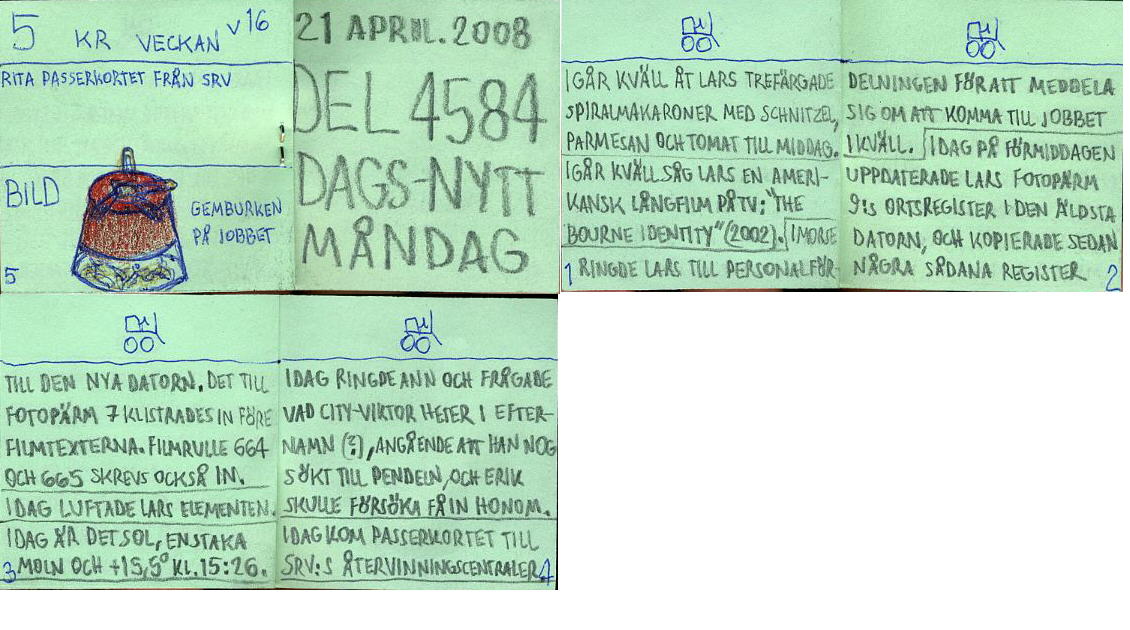 5 KR VECKAN V16
RITA PASSERKORTET FRÅN SRV
BILD
GEMBURKEN
PÅ JOBBET
5
21 APRIL. 2008
DEL 4584
DAGS-NYTT
MÅNDAG
IGÅR KVÄLL ÅT LARS TREFÄRGADE
SPIRALMAKARONER MED SCHNITZEL,
PARMESAN OCH TOMAT TILL MIDDAG.
IGÅR KVÄLL SÅG LARS EN AMERI-
KANSK LÅNGFILM PÅ TV; "THE
BOURNE IDENTITY" (2002). IMORSE
1 RINGDE LARS TILL PERSONALFÖR-
DELNINGEN FÖR ATT MEDDELA
SIG OM ATT KOMMA TILL JOBBET
IKVÄLL. IDAG PÅ FÖRMIDDAGEN
UPPDATERADE LARS FOTOPÄRM
9:S ORTSREGISTER I DEN ÄLDSTA
DATORN, OCH KOPIERADE SEDAN
NÅGRA SÅDANA REGISTER 2
TILL DEN NYA DATORN. DET TILL
FOTOPÄRM 7 KLISTRADES IN FÖRE
FILMTEXTERNA. FILMRULLE 664
OCH 665 SKREVS OCKSÅ IN.
IDAG LUFTADE LARS ELEMENTEN.
IDAG ÄR DET SOL, ENSTAKA
3 MOLN OCH +15,5° KL. 15:26.
IDAG RINGDE ANN OCH FRÅGADE
VAD CITY-VIKTOR HETER I EFTER-
NAMN (?), ANGÅENDE ATT HAN NOG
SÖKT TILL PENDELN, OCH ERIK
SKULLE FÖRSÖKA FÅ IN HONOM.
IDAG KOM PASSERKORTET TILL
SRV:S ÅTERVINNINGSCENTRALER. 4